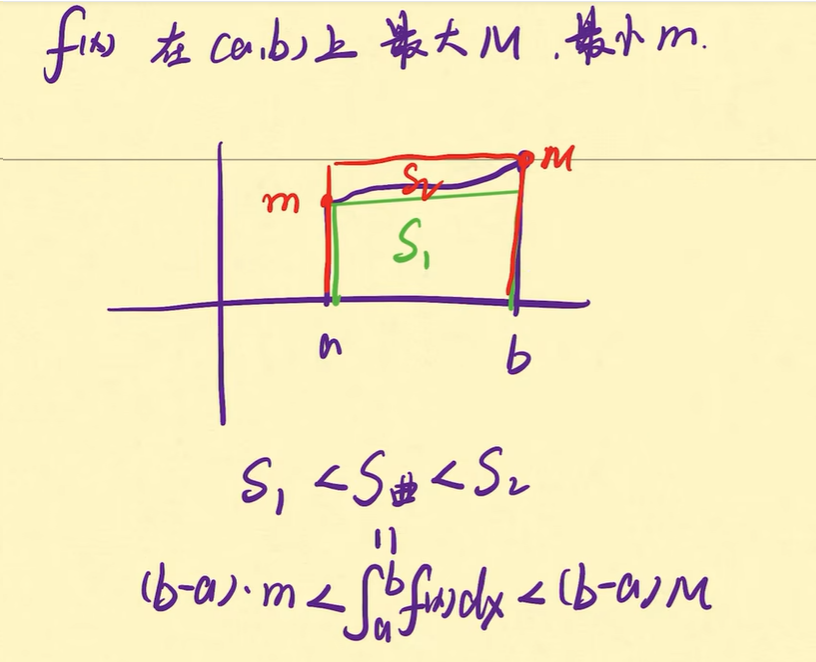 f(x) 在 (a,b) 上 最大 M . 最小 m.
M
S₂
m
S₁
a
b
S₁ < S曲 < S₂
=
(b-a)·m < ∫ₐᵇ f(x)dx < (b-a)M